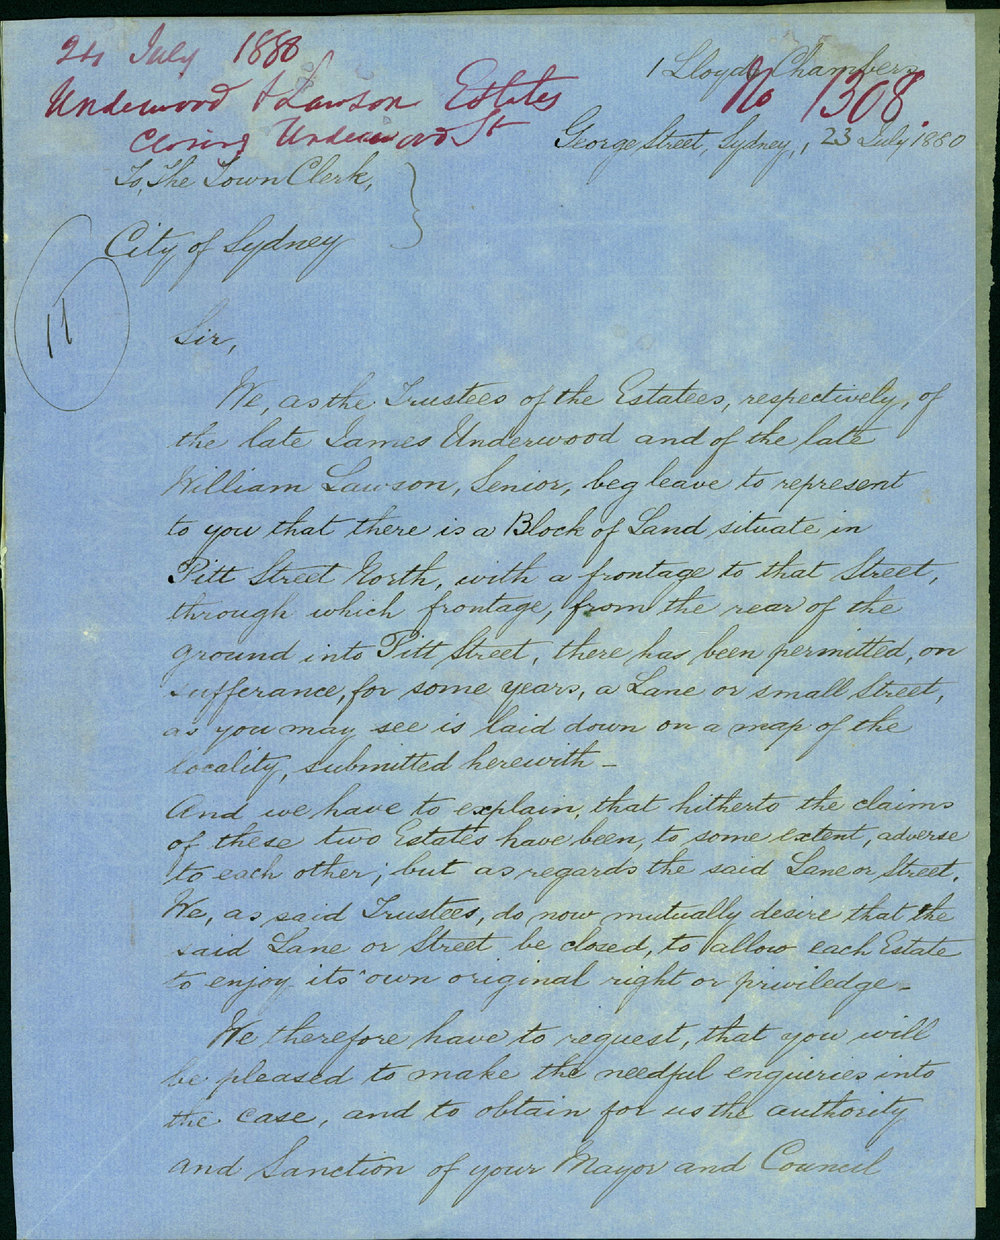 24 July 1880
Underwood & Lawson Estates
Closing Underwood St
1 Lloyds Chambers
No 1308
George Street, Sydney, 23 July 1880
To, The Town Clerk,
City of Sydney
11
Sir,
We, as the Trustees of the Estatees, respectively, of
the late James Underwood and of the late
William Lawson, Senior, beg leave to represent
to you that there is a Block of Land situate in
Pitt Street North, with a frontage to that Street,
through which frontage, from the rear of the
ground into Pitt Street, there has been permitted, on
sufferance, for some years, a Lane or small Street,
as you may see is laid down on a map of the
locality, submitted herewith -
And we have to explain, that hitherto the claims
of these two Estates have been, to some extent, adverse
to each other; but as regards the said Lane or Street.
We, as said Trustees, do now mutually desire that the
said Lane or Street be closed, to allow each Estate
to enjoy its own original right or priviledge -
We therefore have to request, that you will
be pleased to make the needful enquiries into
the case, and to obtain for us the authority
and Sanction of your Mayor and Council